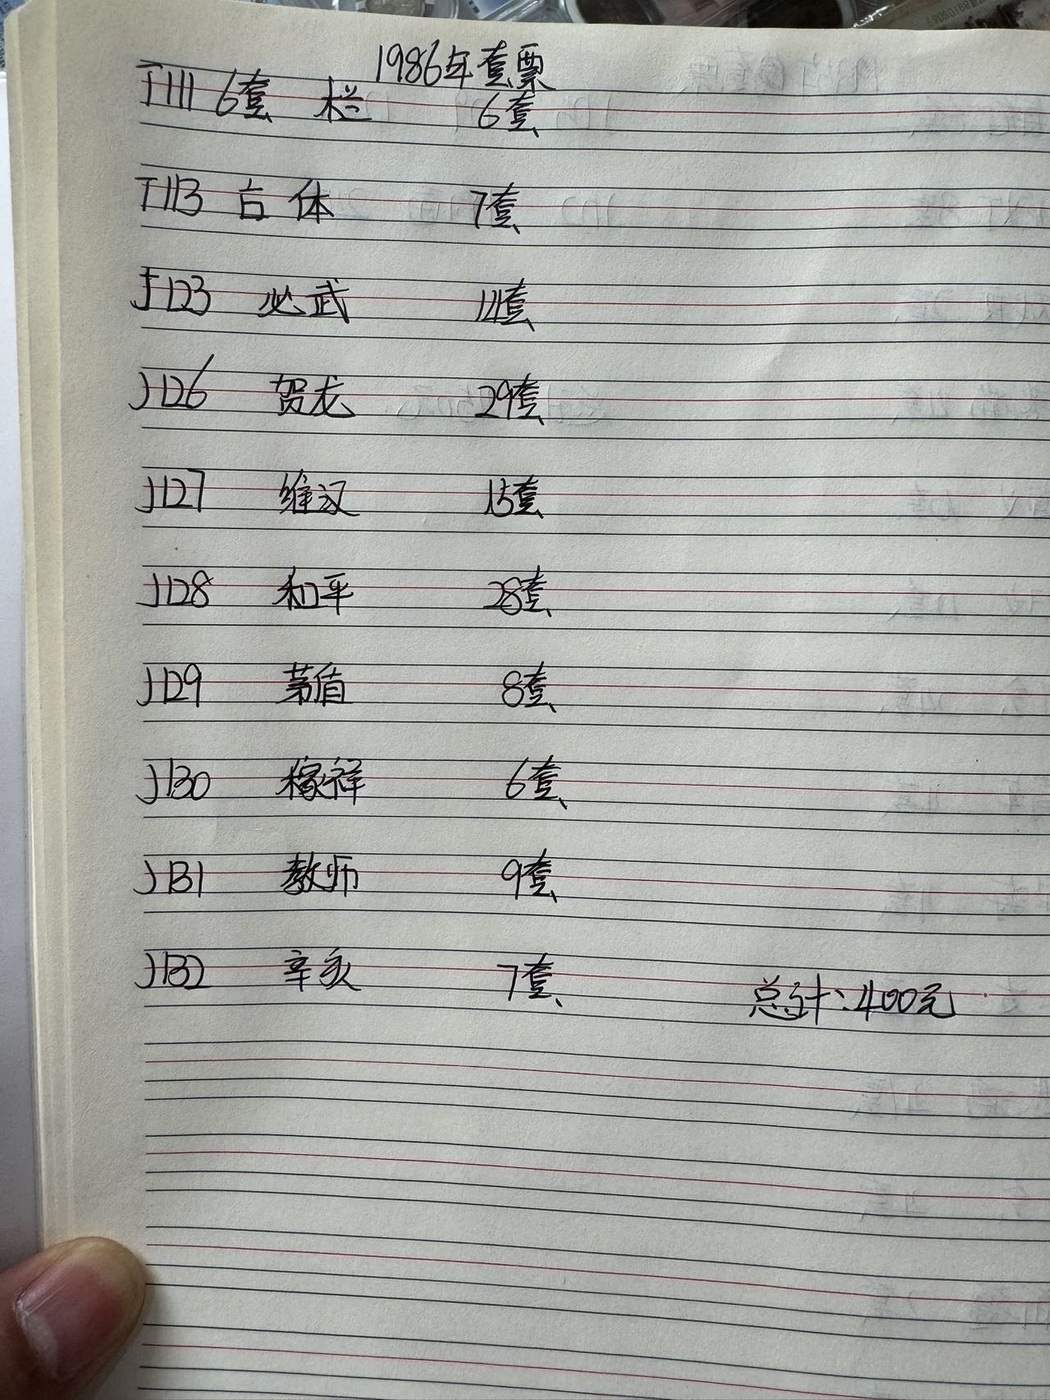 1986年套票
T111 6套 栏 6套
T113 古体 7套
J123 必武 11套
J126 贺龙 29套
J127 维汉 15套
J128 和平 28套
J129 茅盾 8套
J130 稼祥 6套
J131 教师 9套
J132 辛亥 7套
总计:400元